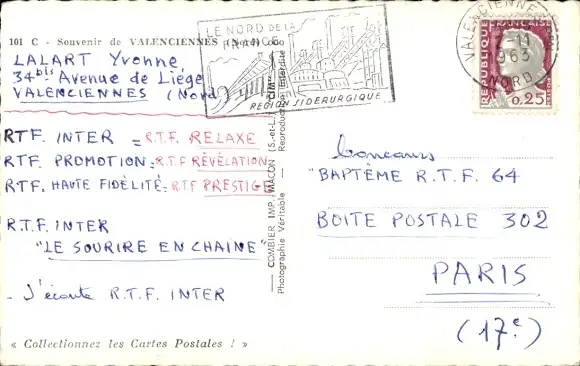 101 C - Souvenir de VALENCIENNES (Nord)
LALART Yvonne
34bis Avenue de Liége
VALENCIENNES (Nord)
RTF. INTER = R.T.F. RELAXE
RTF. PROMOTION = R.T.F RÉVÉLATION
RTF. HAUTE FIDÉLITÉ = RTF PRESTIGE
R.T.F. INTER
"LE SOURIRE EN CHAINE"
- J'écoute R.T.F. INTER
« Collectionnez les Cartes Postales ! »
COMBIER IMP. MACON (S.-et-L.) "CIM"
Photographie Véritable - Reproduction Interdite
LE NORD DE LA
REGION SIDERURGIQUE
VALENCIENNES
1963
NORD
REPUBLIQUE FRANCAISE
0,25
Concours
"BAPTÊME R.T.F. 64
BOITE POSTALE 302
PARIS
(17e)